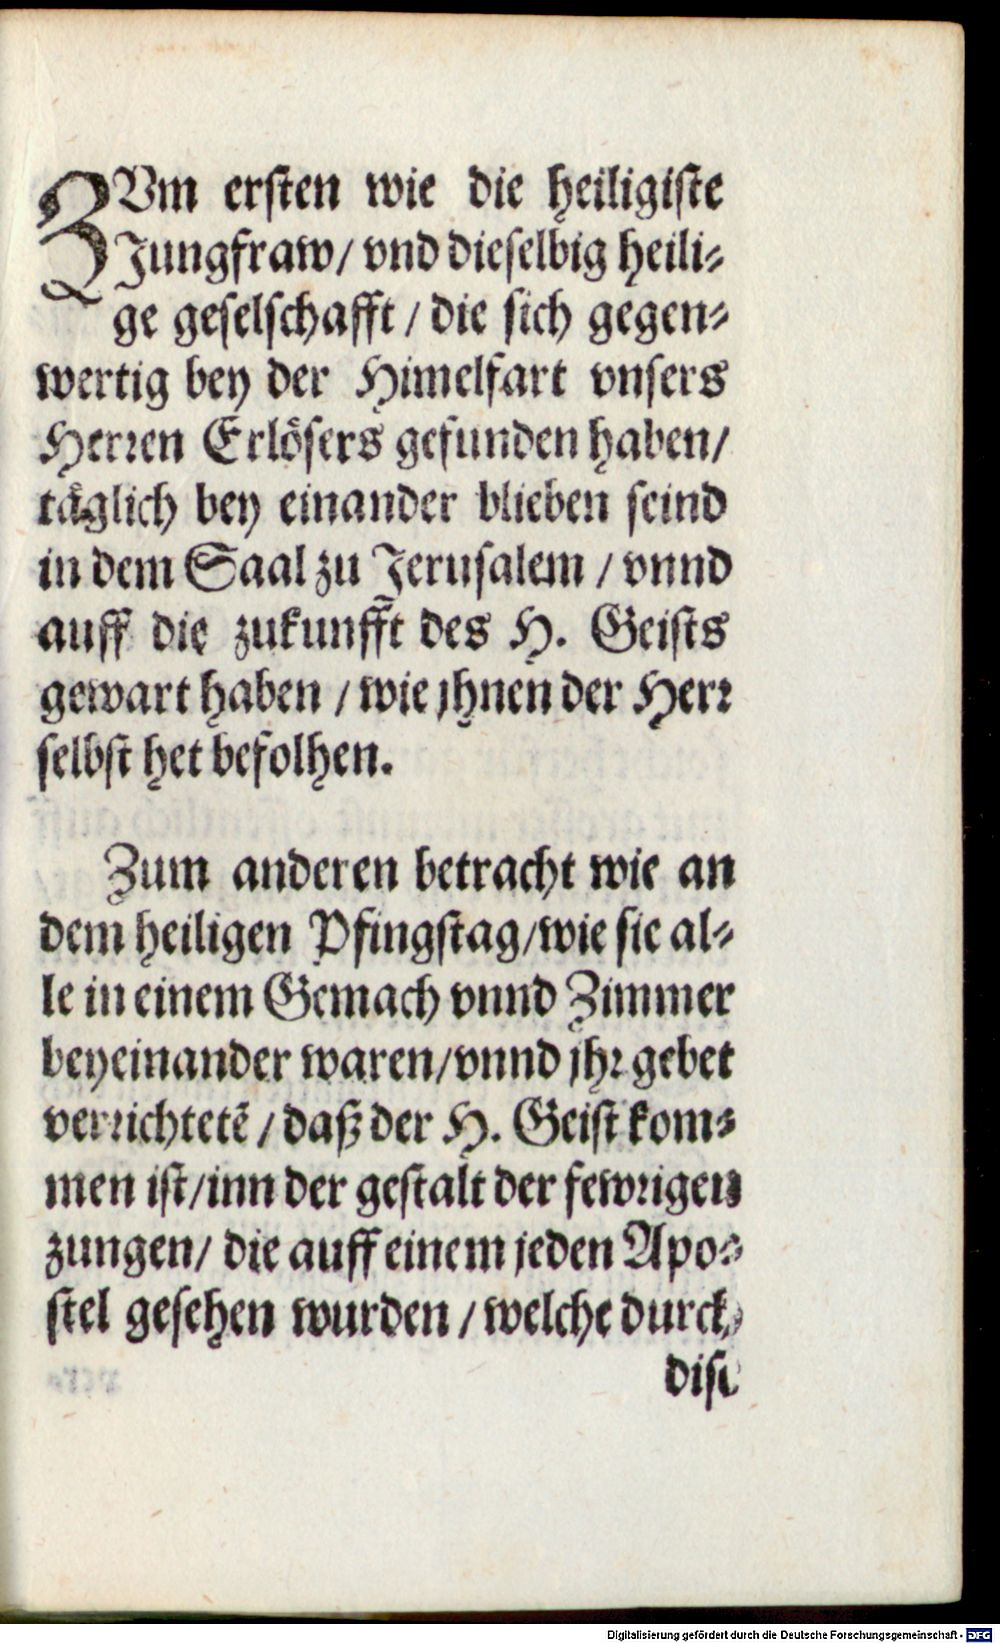 ZVm ersten wie die heiligiste
Jungfraw/ vnd dieselbig heili⸗
ge geselschafft / die sich gegen⸗
wertig bey der Himelfart vnsers
Herren Erlösers gefunden haben/
täglich bey einander blieben seind
in dem Saal zu Jerusalem / vnnd
auff die zukunfft des H. Geists
gewart haben / wie jhnen der Herr
selbst het befolhen.
Zum anderen betracht wie an
dem heiligen Pfingstag/wie sie al⸗
le in einem Gemach vnnd Zimmer
beyeinander waren/vnnd jhr gebet
verrichtetẽ / daß der H. Geist kom⸗
men ist/inn der gestalt der fewrigen
zungen/ die auff einem jeden Apo⸗
stel gesehen wurden / welche durch
dise
Digitalisierung gefördert durch die Deutsche Forschungsgemeinschaft - DFG